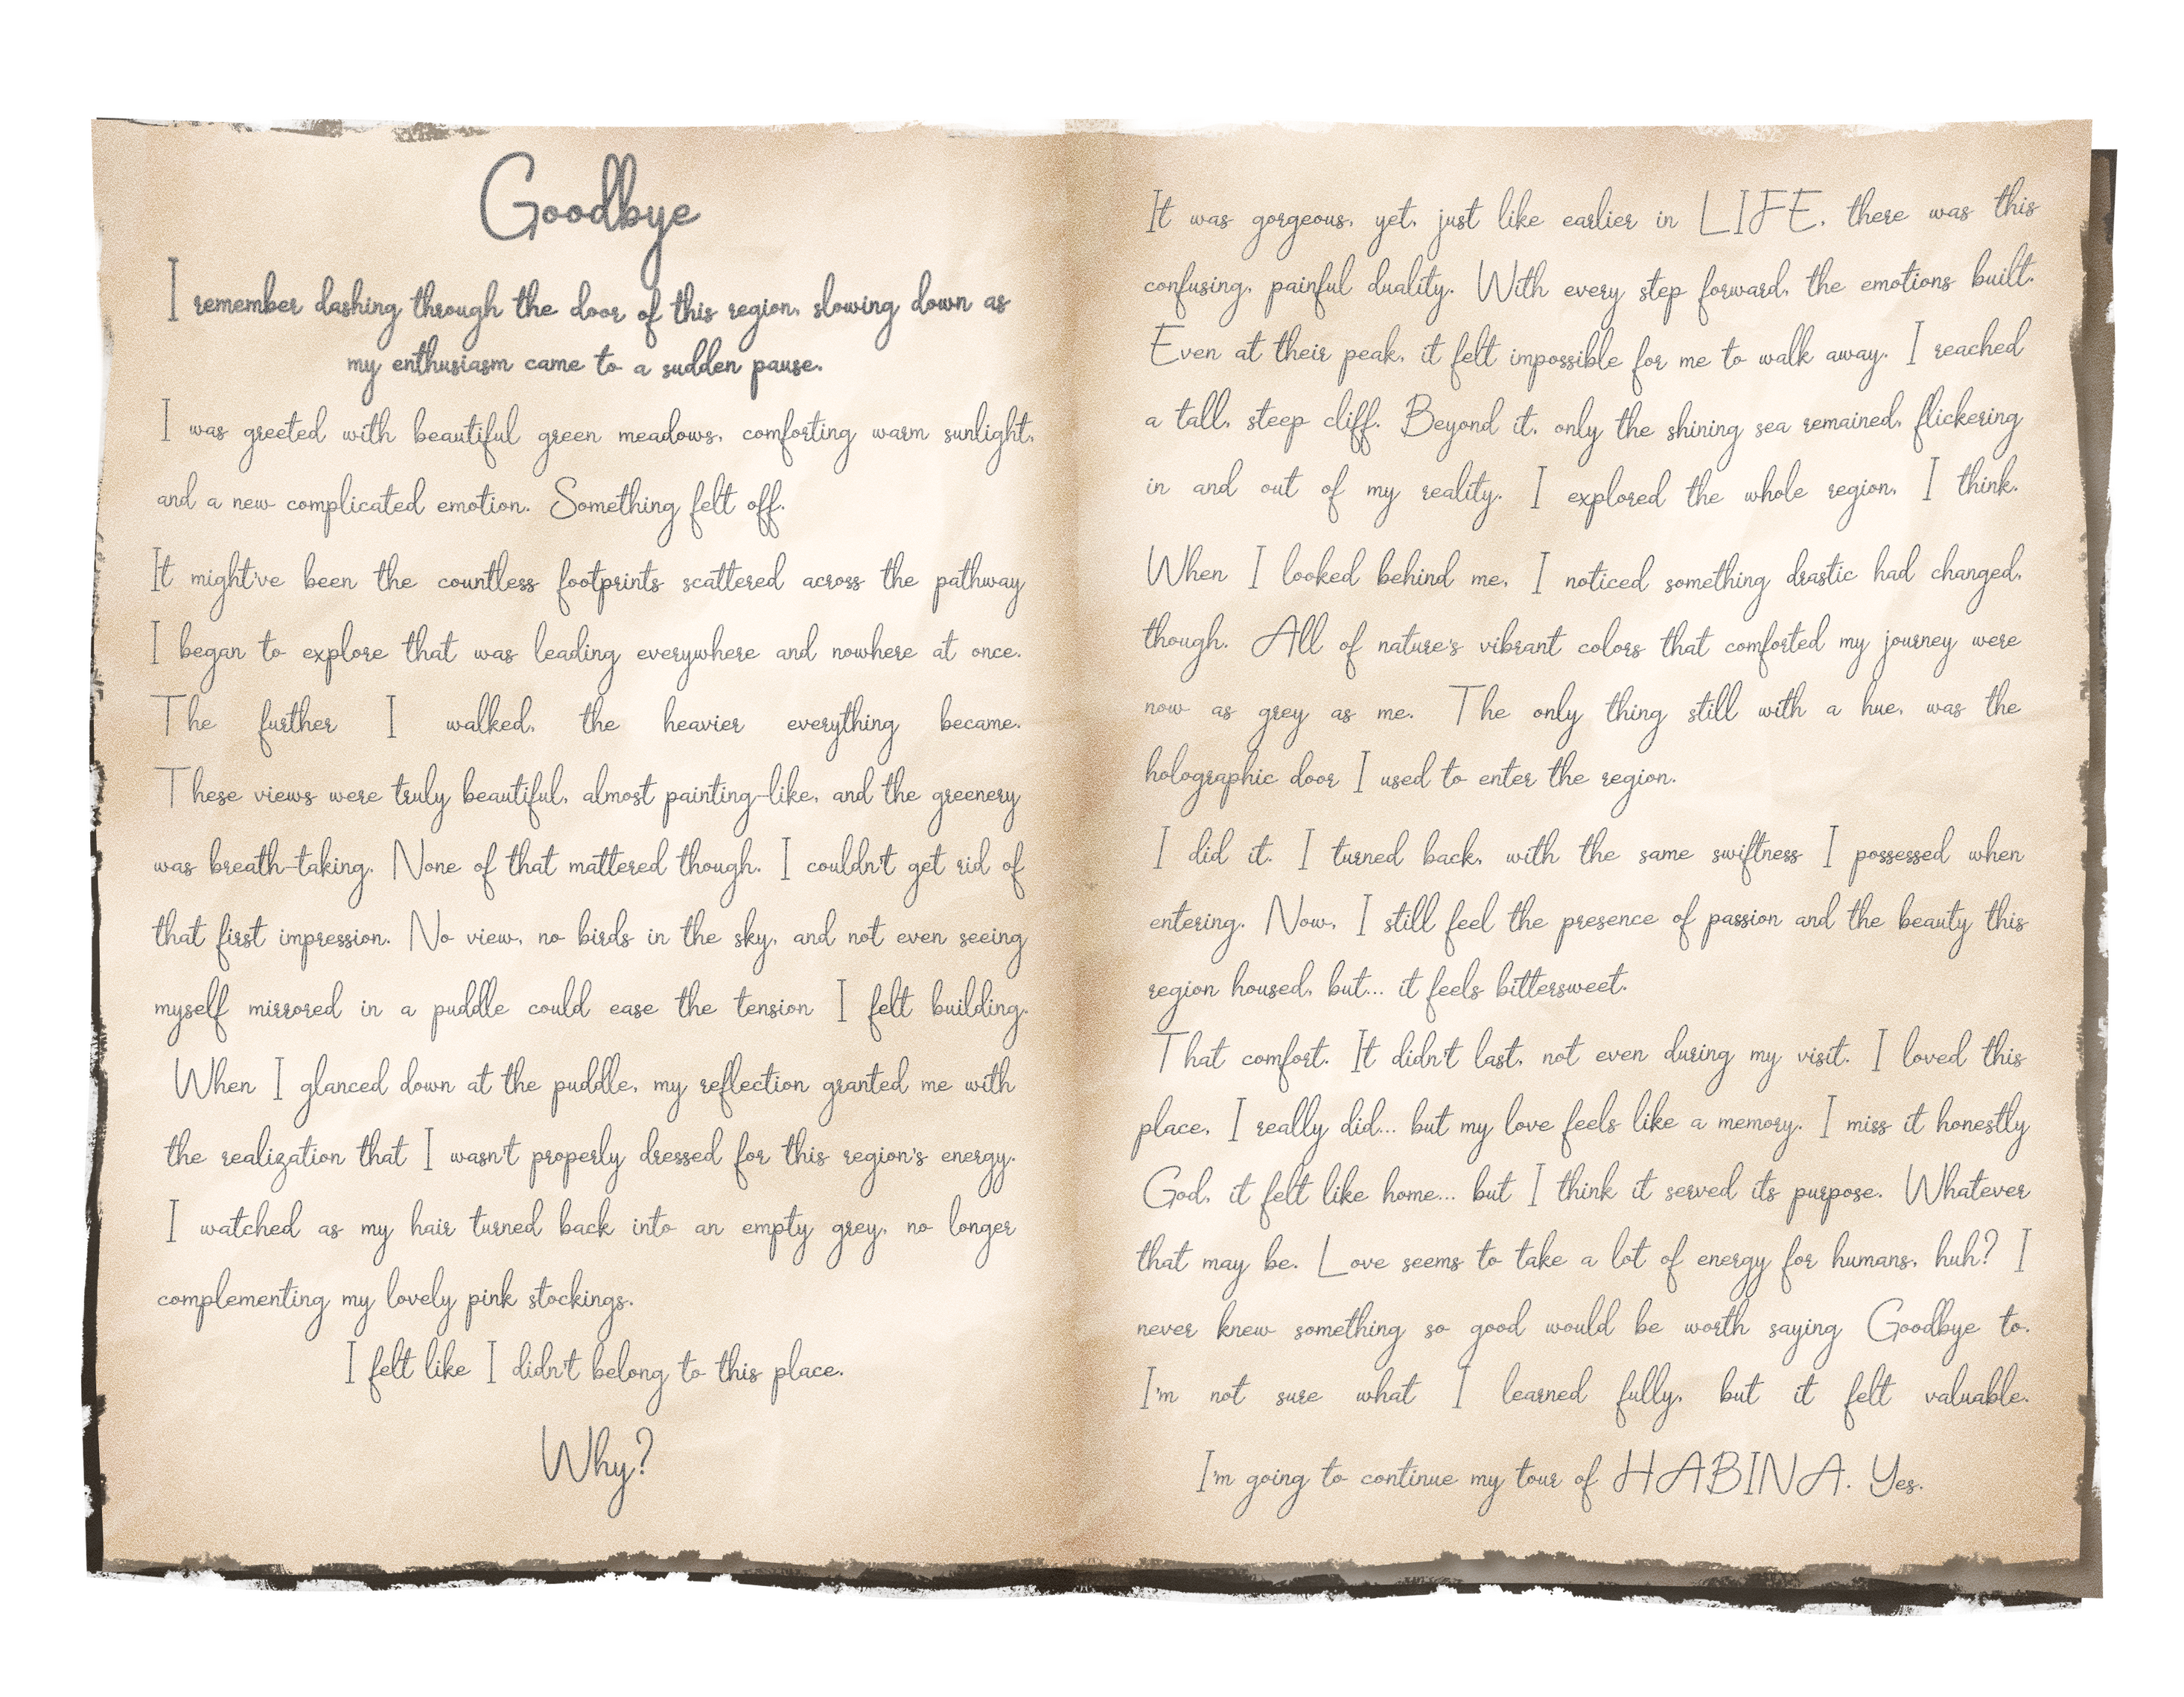 Goodbye
I remember dashing through the door of this region, slowing down as
my enthusiasm came to a sudden pause.
I was greeted with beautiful green meadows, comforting warm sunlight,
and a new complicated emotion. Something felt off.
It might've been the countless footprints scattered across the pathway
I began to explore that was leading everywhere and nowhere at once.
The further I walked, the heavier everything became.
These views were truly beautiful, almost painting-like, and the greenery
was breath-taking. None of that mattered though. I couldn't get rid of
that first impression. No view, no birds in the sky, and not even seeing
myself mirrored in a puddle could ease the tension I felt building.
When I glanced down at the puddle, my reflection granted me with
the realization that I wasn't properly dressed for this region's energy.
I watched as my hair turned back into an empty grey, no longer
complementing my lovely pink stockings.
I felt like I didn't belong to this place.
Why?
It was gorgeous, yet, just like earlier in LIFE, there was this
confusing, painful duality. With every step forward, the emotions built.
Even at their peak, it felt impossible for me to walk away. I reached
a tall, steep cliff. Beyond it, only the shining sea remained, flickering
in and out of my reality. I explored the whole region, I think.
When I looked behind me, I noticed something drastic had changed,
though. All of nature's vibrant colors that comforted my journey were
now as grey as me. The only thing still with a hue, was the
holographic door I used to enter the region.
I did it. I turned back, with the same swiftness I possessed when
entering. Now, I still feel the presence of passion and the beauty this
region housed, but... it feels bittersweet.
That comfort. It didn't last, not even during my visit. I loved this
place, I really did... but my love feels like a memory. I miss it honestly
God, it felt like home... but I think it served its purpose. Whatever
that may be. Love seems to take a lot of energy for humans, huh? I
never knew something so good would be worth saying Goodbye to.
I'm not sure what I learned fully, but it felt valuable.
I'm going to continue my tour of HABINA. Yes.